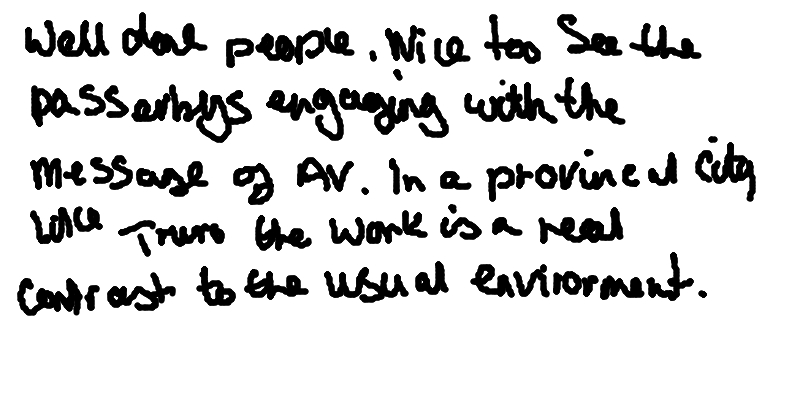 Well done people. Nice too See the
passerbys engaging with the
message of AV. In a provincal city
like Truro the work is a real
contrast to the usual enviroment.